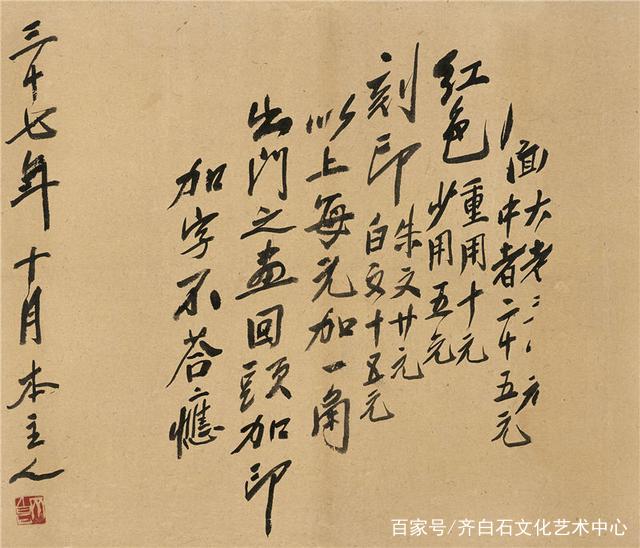 面 大者三十元
中者二十五元
红色 重用十元
少用五元
刻印 朱文廿元
白文十五元
以上每元加一角
出門之畫回頭加印
加字不荅應
三十七年十月本主人
百家号/齐白石文化艺术中心